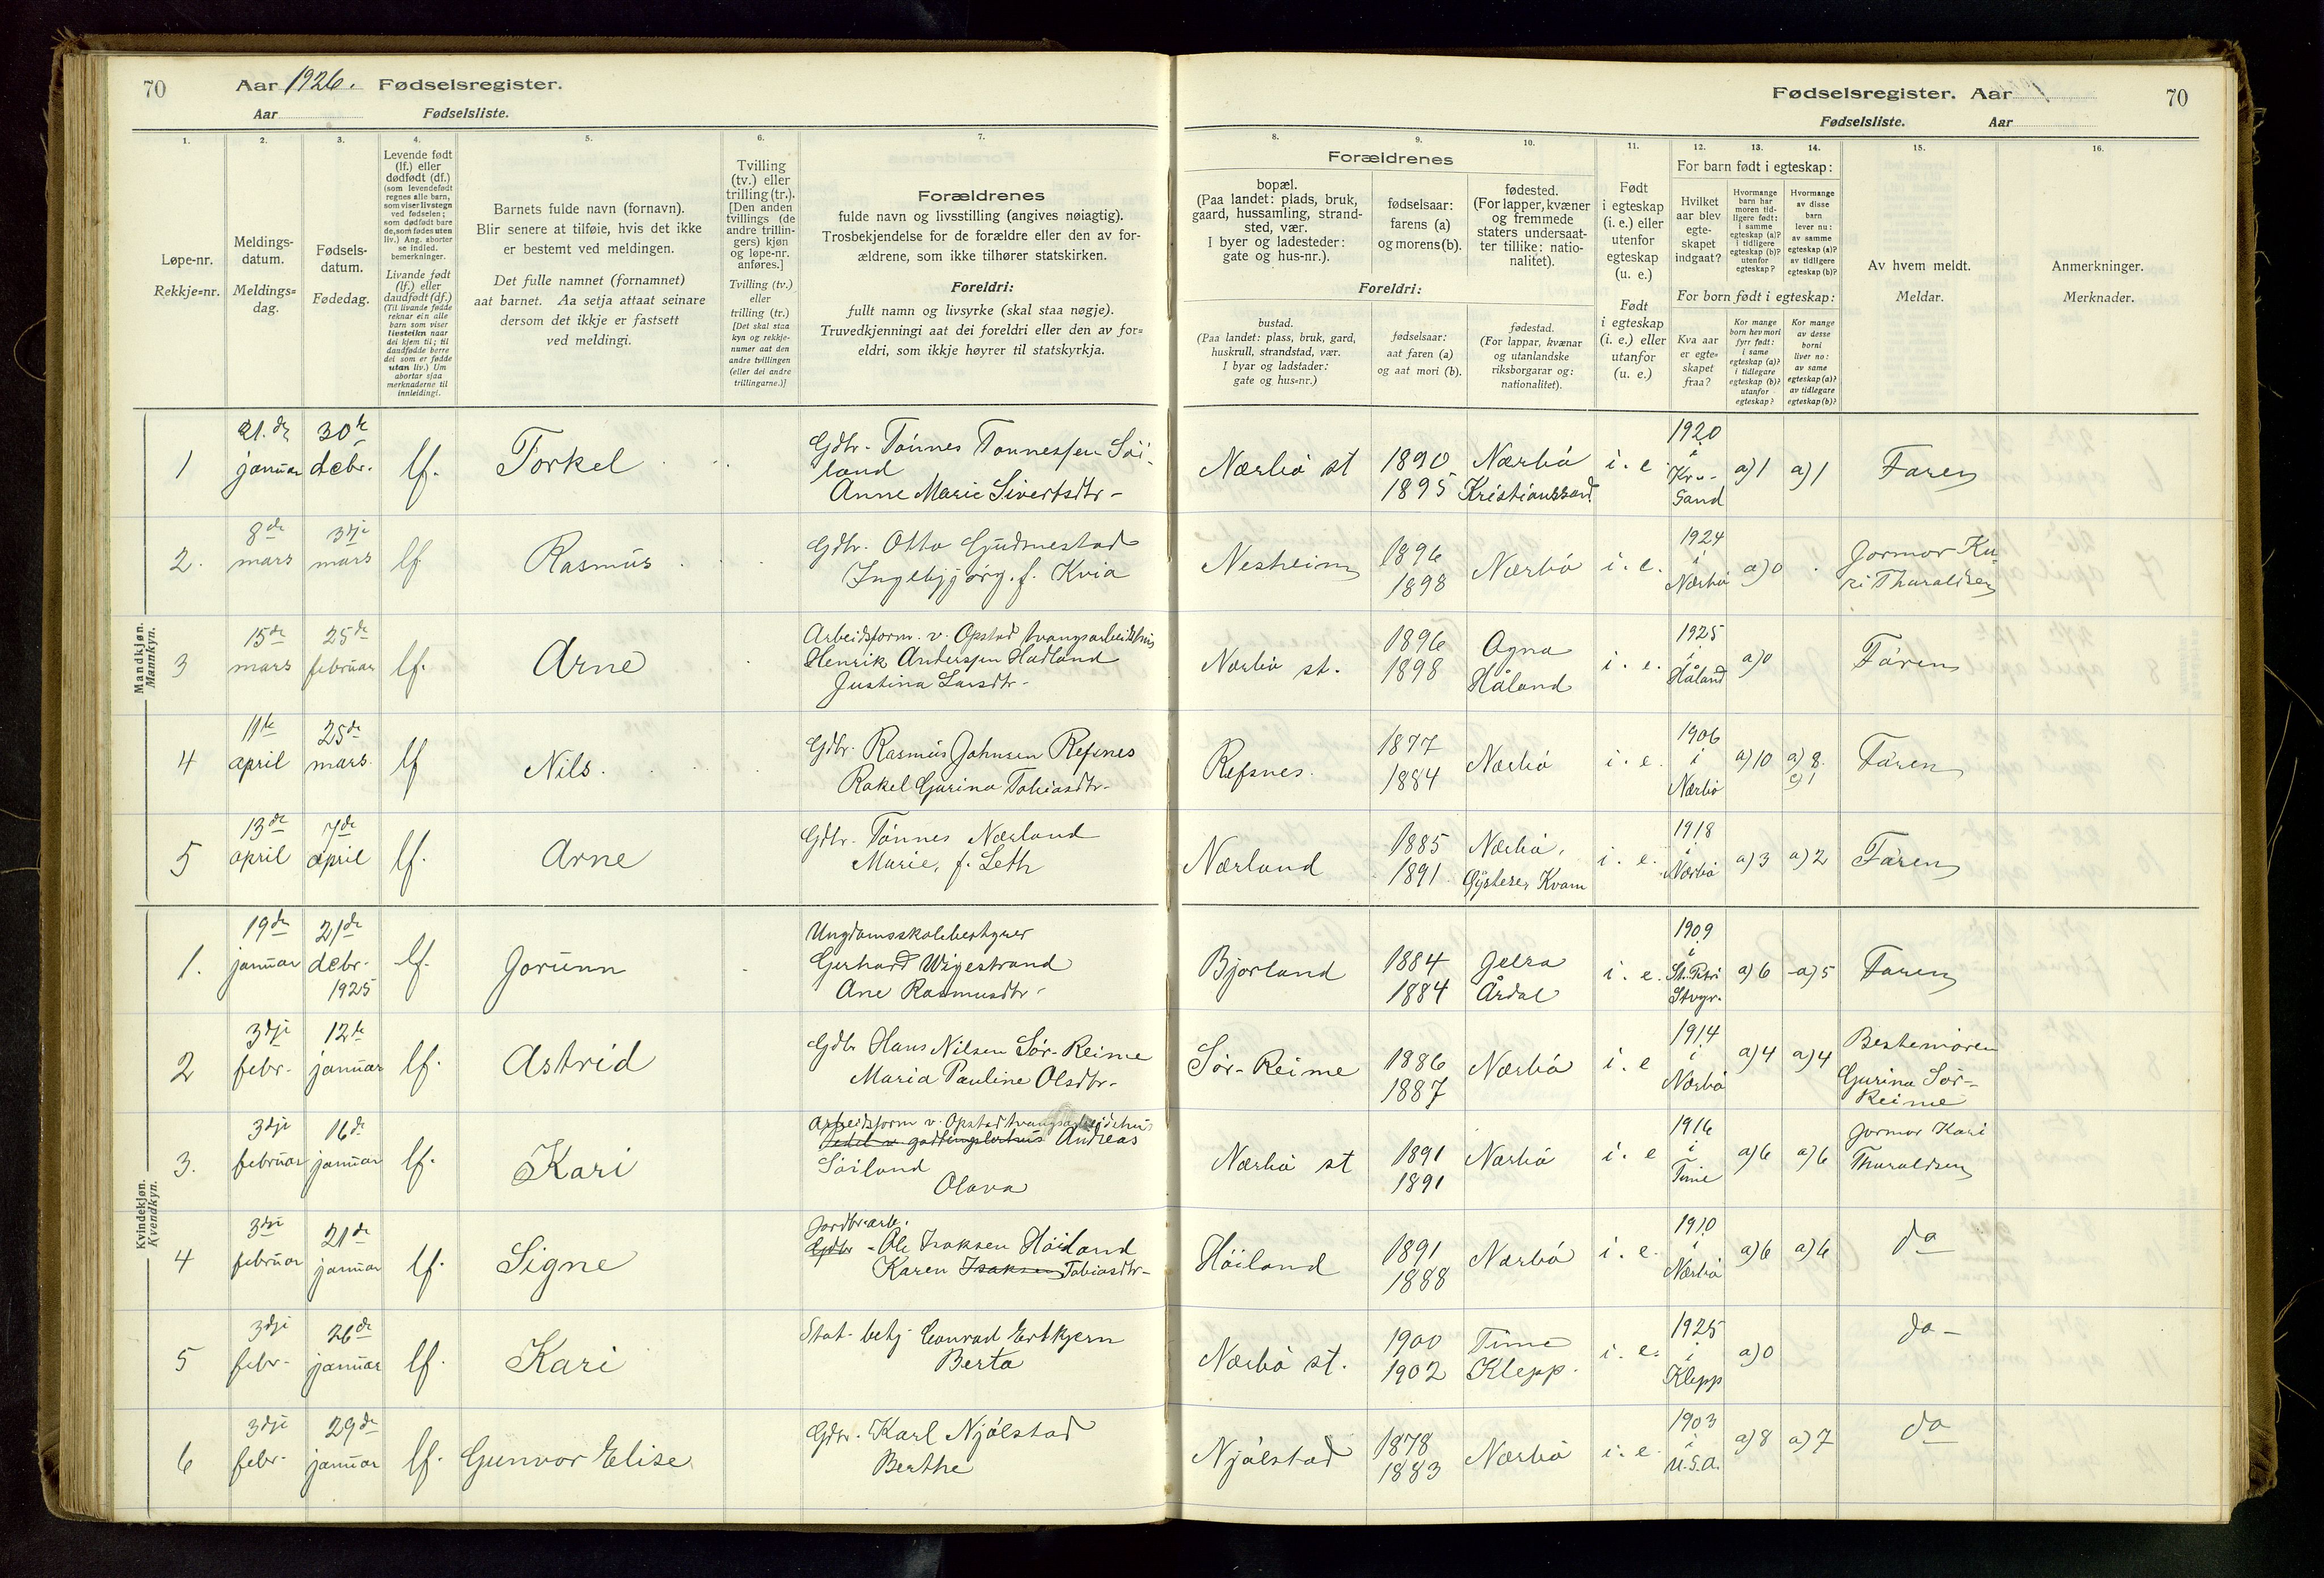 70 Aar 1926. Fødselsregister.
Aar Fødselsliste.
1. 2. 3. 4. 5. 6. 7.
Løpe-nr.
Rekkje=nr.
Meldings-
datum.
Meldings=
dag.
Fødsels-
datum.
Fødedag.
Levende født
(lf.) eller
dødfødt (df.)
(som levendefødt
regnes alle barn,
som viser livstegn
ved fødselen;
som dødfødt bare
de, som fødes uten
liv.) Ang. aborter
se indled.
bemerkninger.
Livande født
(lf.) eller
daudfødt (df.)
(Til livande fødde
reknar ein alle
barn som viser
livsteikn naar
dei kjem til; til
daudfødde berre
dei som er fødde
utan liv.) Um
abortar sjaa
merknaderne til
innleidingi.
Barnets fulde navn (fornavn).
Blir senere at tilføie, hvis det ikke
er bestemt ved meldingen.
Det fulle namnet (fornamnet)
aat barnet. Aa setja attaat seinare
dersom det ikkje er fastsett
ved meldingi.
Tvilling
(tv.) eller
trilling (tr.).
[Den anden
tvillings (de
andre trillin-
gers) kjøn
og løpe-nr.
anføres.]
Tvilling (tv.)
eller
trilling (tr.)
[Det skal staa
kyn og rekkje-
numer aat den
andre tvillingen
(eller dei andre
trillingarne.)]
Forældrenes
fulde navn og livsstilling (angives nøiagtig).
Trosbekjendelse for de forældre eller den av for-
ældrene, som ikke tilhører statskirken.
Foreldri:
fullt namn og livsyrke (skal staa nøgje).
Truvedkjenningi aat dei foreldri eller den av for=
eldri, som ikkje høyrer til statskyrkja.
Mandkjøn.
Mannkyn.
1 21. de januar 30te debr. lf. Torkel
Gdbr. Tønnes Tønnessen Søi-
land
Anne Marie Sivertsdtr-
2. 8de mars 3dji mars lf. Rasmus
Gdbr. Otto Gudmestad
Ingebjørg, f. Kvia
3 15de mars 25de februar lf. Arne
Arbeidsform. v. Opstad tvangsarbeidshus
Henrik Anderssen Hadland
Justina Larsdtr-
4 11te april 25de mars. lf Nils.
Gdbr. Rasmus Johnsen Refsnes
Rakel Gurina Tobiasdtr-
5 13de april 7de april lf. Arne
Gdbr. Tønnes Nærland
Marie, f. Leth
Kvindekjøn.
Kvendkyn.
1. 19de januar 21de debr. 1925 lf. Jorunn
Ungdomsskolebestyrer
Gerhard Wigestrand
Ane Rasmusdtr-
2 3dji febr. 12te januar lf. Astrid
Gdbr Hans Nilsen Sør-Reime
Maria Pauline Olsdtr-
3. 3dji februar 16de januar lf. Kari
Arbeidsform v. Opstad tvangsarbeidshus
Andreas
Søiland
Olava
4 3dji februar 21de januar lf. Signe
Jordbr-arb.
Gdbr - Ole Isaksen Høiland
Karen Isaksen Tobiasdtr-
5 3dji febr- 26de januar lf. Kari
Stat- betj Conrad Ertkjern
Berta
6 3dji febr- 29de januar lf. Gunvor Elise
Gdbr. Karl Njølstad
Berthe
Fødselsregister. Aar 70
Fødselsliste. Aar
8. 9. 10. 11. 12. 13. 14. 15. 16.
Forældrenes
bopæl.
(Paa landet: plads, bruk,
gaard, hussamling, strand-
sted, vær.
I byer og ladesteder:
gate og hus-nr.).
fødselsaar:
farens (a)
og morens (b).
fødested.
(For lapper, kvæner
og fremmede
staters undersaat-
ter tillike: natio-
nalitet).
Foreldri:
bustad.
(Paa landet: plass, bruk, gard,
huskrull, strandstad, vær.
I byar og ladstader:
gate og hus=nr.)
fødselsaar:
aat faren (a)
og aat mori (b).
fødestad.
(For lappar, kvænar
og utanlandske
riksborgarar og:
nationalitet).
Født
i egteskap
(i. e.) eller
utenfor
egteskap
(u. e.)
Født
i egteskap
(i. e.) eller
utanfor
(u. e.)
For barn født i egteskap:
Hvilket
aar blev
egte-
skapet
indgaat?
Hvormange
barn har
moren tid-
ligere født:
i samme
egteskap (a)?
i tidligere
egteskap (b)?
utenfor
egteskap?
Hvormange
av disse
barn
lever nu:
av samme
egteskap (a)?
av tidligere
egteskap (b)?
For born født i egteskap:
Kva aar
er egte-
skapet
fraa?
Kor mange
born hev mori
fyrr født:
i same
egteskap (a)?
i tidlegare
egteskap (b)?
utanfor
egteskap?
Kor mange
av desse
borni
liver no:
av same
egteskap (a)?
av tidlegare
egteskap (b)?
Av hvem meldt.
Meldar.
Anmerkninger.
Merknader.
Nærbø st 1890 1895 Nærbø Kristianssand i. e. 1920 i Kr.- Sand a) 1 a) 1 Faren
Nesheim 1896 1898 Nærbø i. e. 1924 i Nærbø a) 0 Jormor Kari Tharaldsen
Nærbø st. 1896 1898 Ogna Håland i. e. 1925 i Håland a) 0 Faren
Refsnes. 1877 1884 Nærbø i. e. 1906 i Nærbø a) 10 a) 8. Faren
Nærland 1885 1891 Nærbø, Øystese, Kvam i. e. 1918 i Nærbø a) 3 a) 2 Faren
Bjorland 1884 1884 Jelsa Årdal i. e. 1909 i St. Petri Stvgr. a) 6 a) 5 Faren
Sør-Reime 1886 1887 Nærbø i. e 1914 i Nærbø a) 4 a) 4 Bestemoren Gurina Sør-Reime
Nærbø st 1891 1891 Nærbø i. e 1916 i Time a) 6 a) 6 Jormor Kari Tharaldsen
Høiland 1891 1888 Nærbø i. e. 1910 i Nærbø a) 6 a) 6 do
Nærbø st. 1900 1902 Time Klepp. i. e. 1925 i Klepp a) 0 do-
Njølstad 1878 1883 Nærbø i. e. 1903 i U.S.A. a) 8 a) 7 do